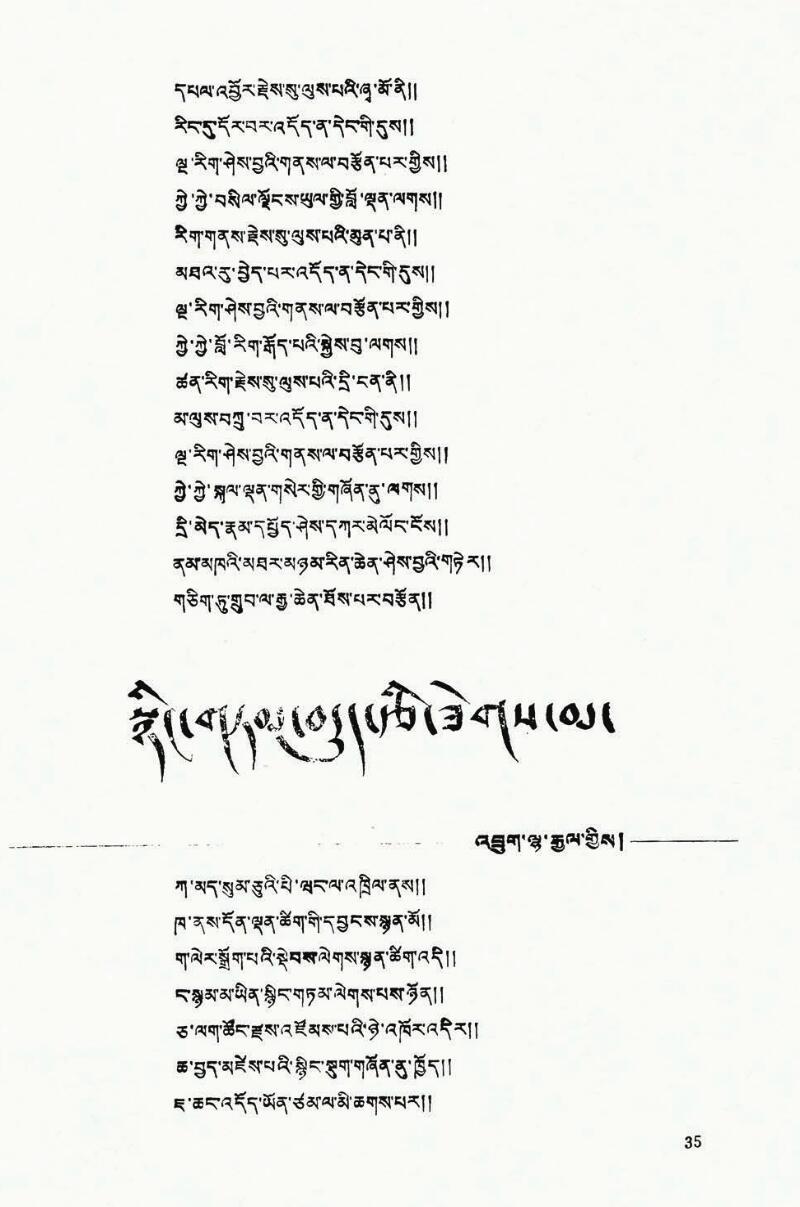 དཔལ་འབྱོར་རྗེས་སུ་ལུས་པའི་ཞྭ་མོ་ནི།།
རིང་དུ་དོར་བར་འདོད་ན་དེང་གི་དུས།།
ལྔ་རིག་ཤེས་བྱའི་གནས་ལ་བརྩོན་པར་གྱིས།།
ཀྱེ་ཀྱེ་བསིལ་ལྗོངས་ཡུལ་གྱི་བློ་ལྡན་ལགས།།
རིག་གནས་རྗེས་སུ་ལུས་པའི་མུན་པ་ནི།།
མཐའ་རུ་བྱེད་པར་འདོད་ན་དེང་གི་དུས།།
ལྔ་རིག་ཤེས་བྱའི་གནས་ལ་བརྩོན་པར་གྱིས།།
ཀྱེ་ཀྱེ་བློ་རིག་རྒོད་པའི་སྐྱེས་བུ་ལགས།།
ཚན་རིག་རྗེས་སུ་ལུས་པའི་དྲི་ངན་ནི།།
མ་ལུས་བཀྲུ་བར་འདོད་ན་དེང་གི་དུས།།
ལྔ་རིག་ཤེས་བྱའི་གནས་ལ་བརྩོན་པར་གྱིས།།
ཀྱེ་ཀྱེ་སྐལ་ལྡན་གསེར་གྱི་གཞོན་ནུ་ལགས།།
དྲི་མེད་རྣམ་དཔྱོད་ཤེས་དཀར་མེ་ལོང་ངོས།།
ནམ་མཁའི་མཐར་མཉམ་རིན་ཆེན་ཤེས་བྱའི་གཏེར།།
གཅིག་ཏུ་གྲུབ་ལ་རྒྱ་ཆེན་ཐོས་པར་བརྩོན།།
འབྲུག་ལྷ་རྒྱལ་གྱིས།
ཀ་མད་སུམ་ཅུའི་པི་ཝང་ལ་འཁྲིལ་ནས།།
ཁ་ནས་དོན་ལྡན་ཚིག་གི་དབྱངས་སྙན་མོ།།
ག་ལེར་སྒྲོག་པའི་སྡེབས་ལེགས་སྙན་ཚིག་འདི།།
ང་སྙམ་མ་ཡིན་སྙིང་གཏམ་ལེགས་པས་ཉོན།།
ཅ་ལག་ཚོང་རྫས་འཛོམས་པའི་ཉེ་འཁོར་འདིར།།
ཆ་བྱད་མཛེས་པའི་སྙིང་སྡུག་གཞོན་ནུ་ཁྱོད།།
ཇ་ཆང་འདོད་ཡོན་ཙམ་ལ་མི་ཆགས་པར།།
35